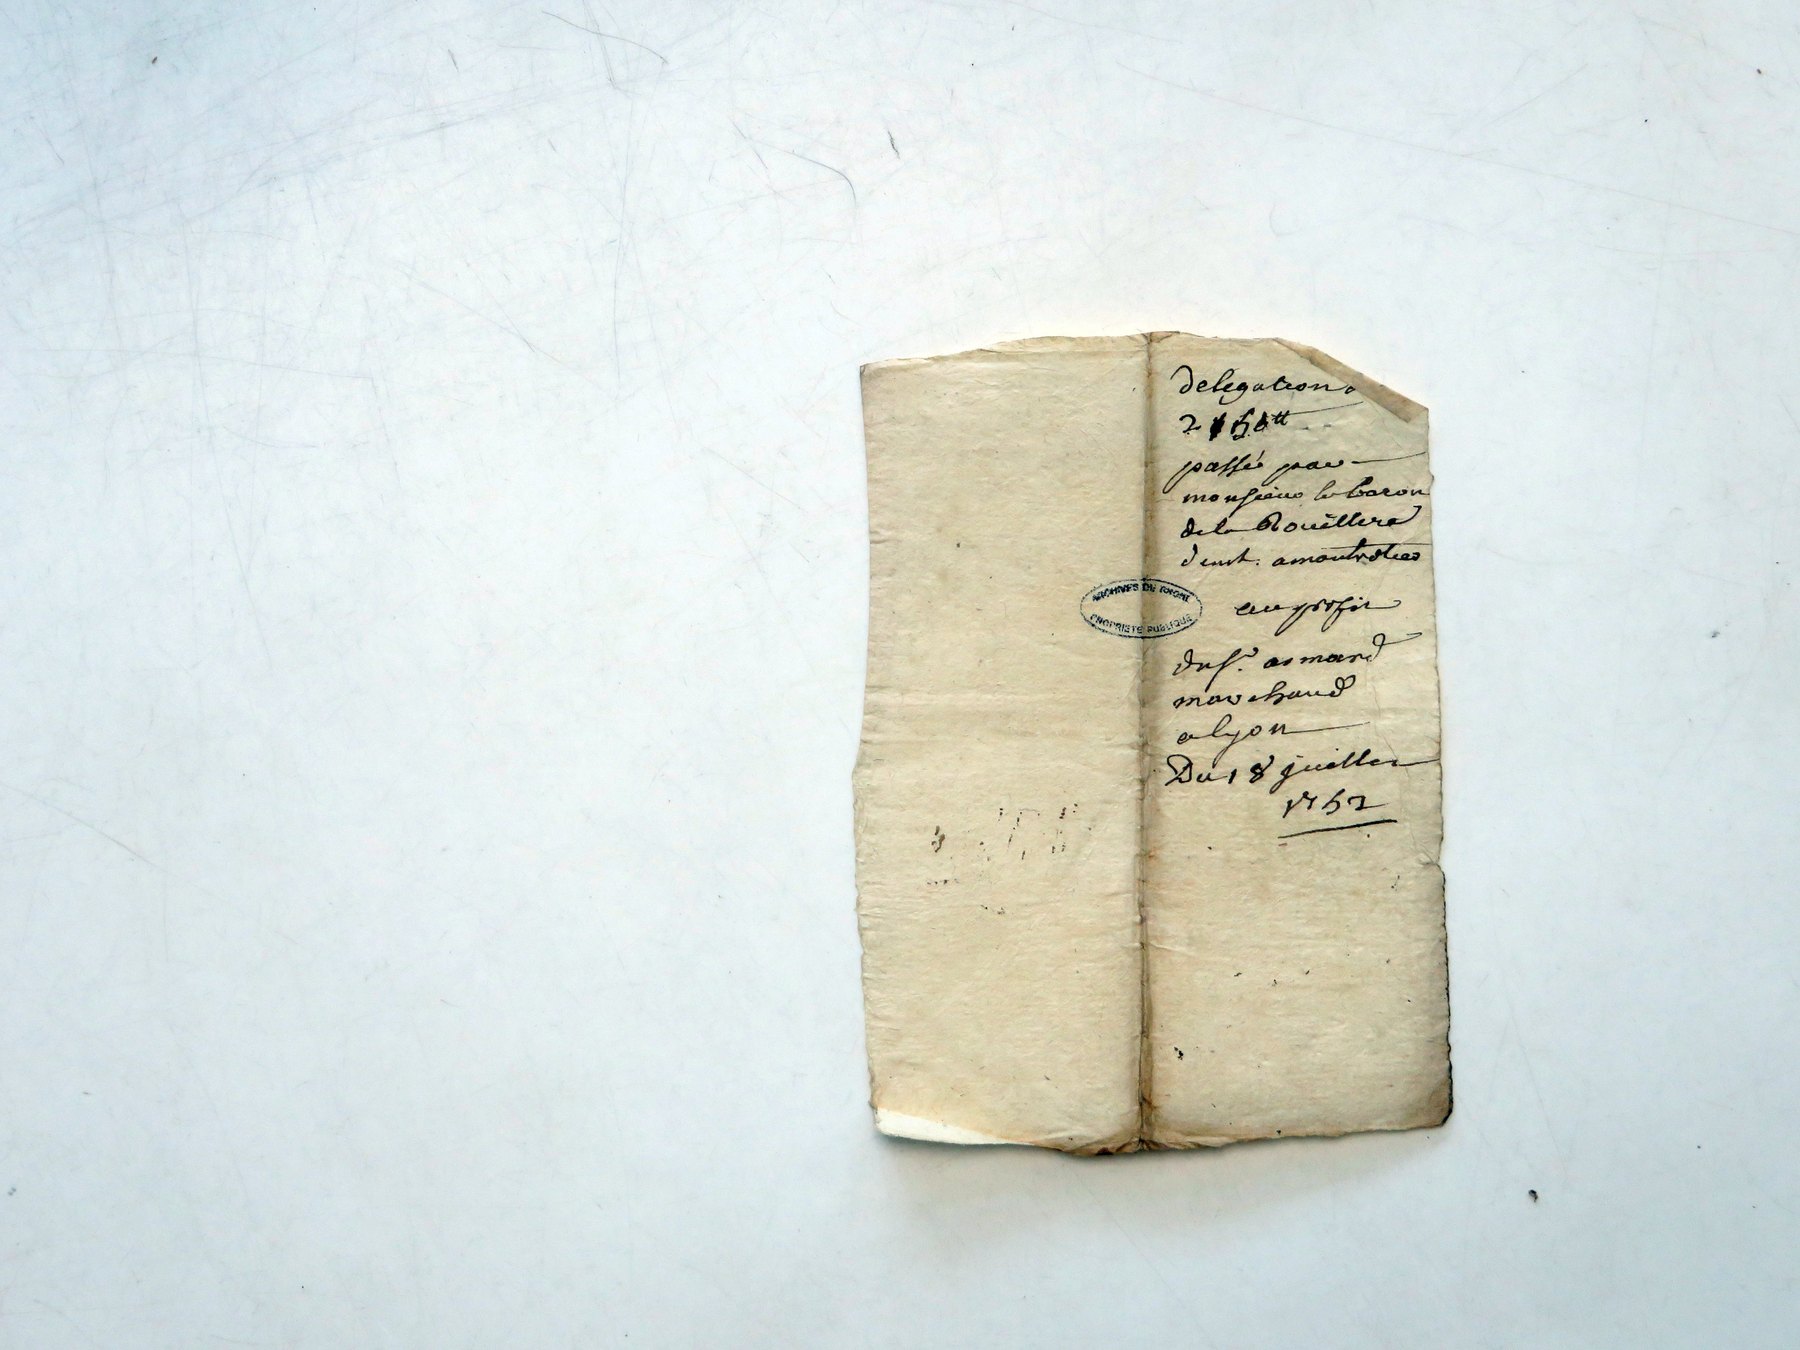 delegation
2150tt
passée par
monsieur le baron
de la Roüillere
au profit
du sr. armand
marchand
a lyon
Du 18 juillet
1752
ARCHIVES DU RHONE
PROPRIETE PUBLIQUE